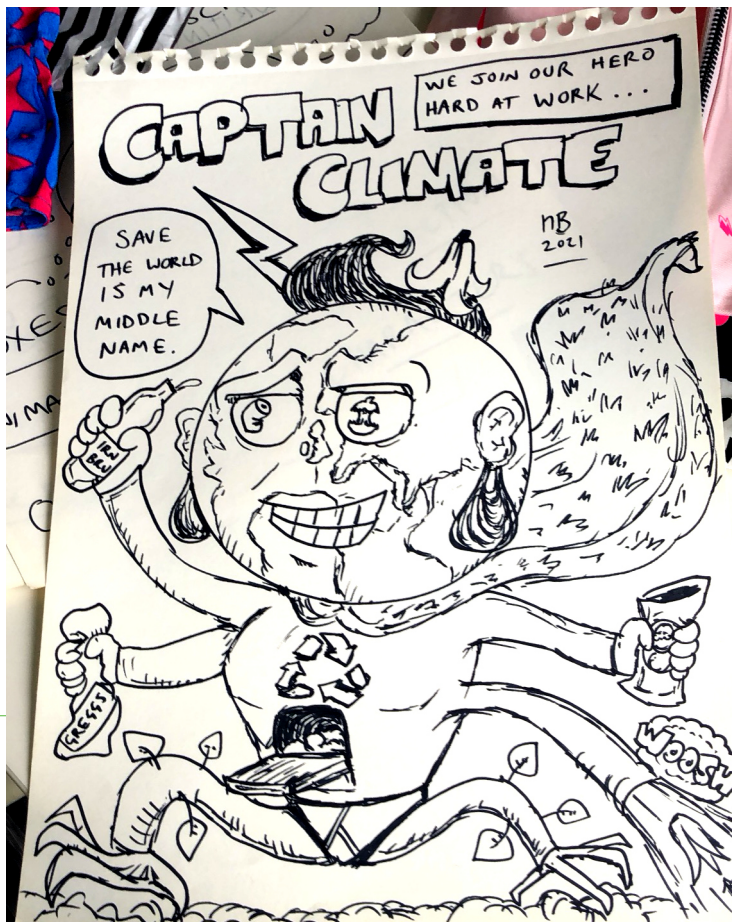 CAPTAIN
CLIMATE
WE JOIN OUR HERO
HARD AT WORK ...
NB
2021
SAVE
THE WORLD
IS MY
MIDDLE
NAME.
IRN
BRU
GREGGS
WOOSH